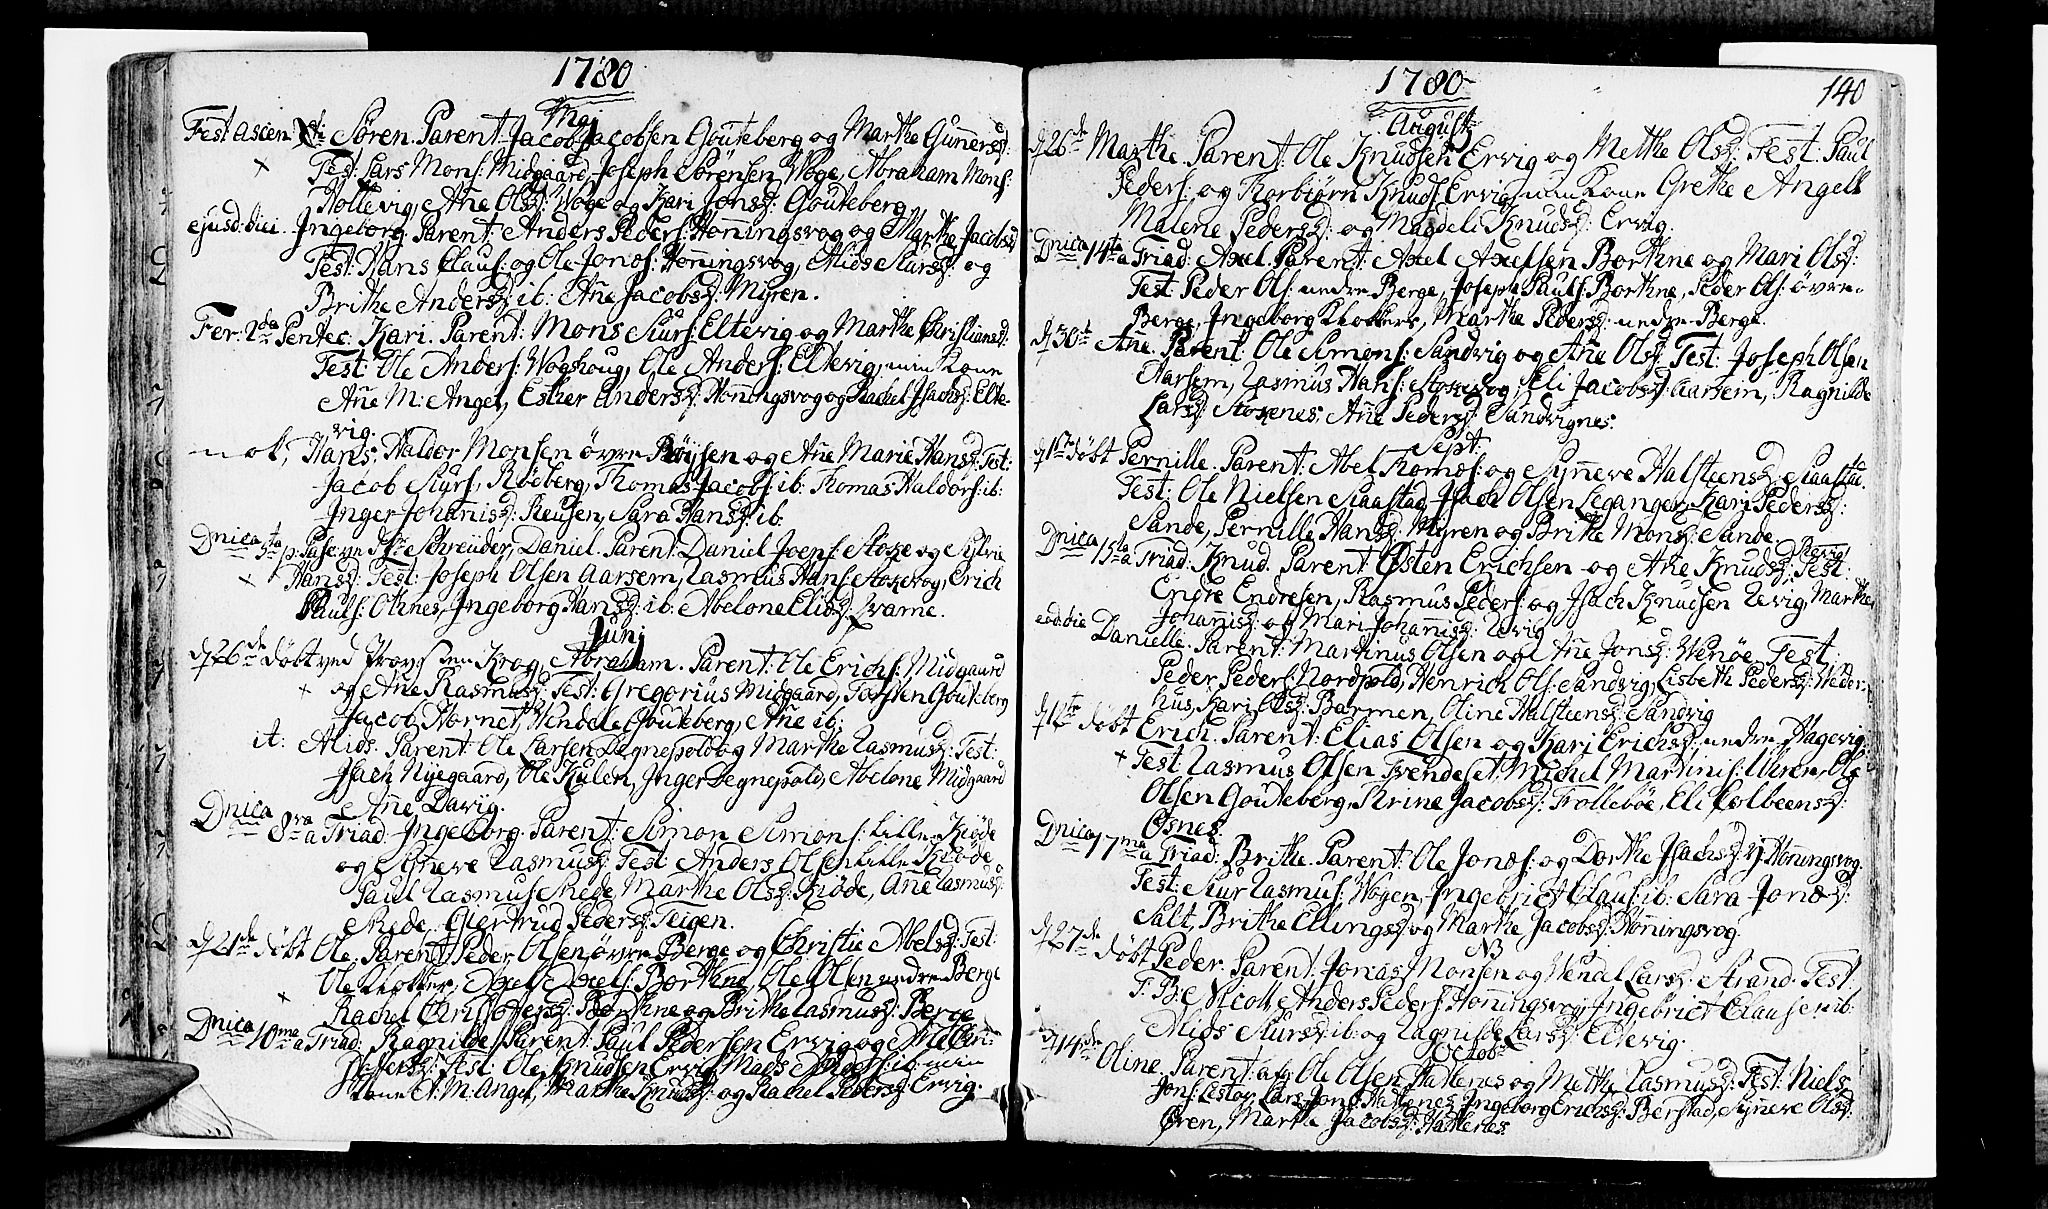 1780
Maj
Fest Ascen Xti Søren. Parent Jacob Jacobsen Gouteberg og Marthe Gunnersd:
Test: Lars Mons: Midgaard, Joseph Sørensen Woge, Abraham Mons:
Hollevig, Ane Olsd: Woge og Kari Jonsd: Gouteberg
ejusd: diei Ingeborg. Parent Anders Peders: Honningsvog og Marthe Jacobsd
Test: Hans Claus: og Ole Jonos: Honningsvog, Alids Siursd: og
Brithe Andersd: ib: Ane Jacobsd: Myren.
Fer: 2da Pentec. Kari. Parent: Mons Siurs: Eltevig og Marthe Christiansd:
Test: Ole Anders: Woghoug, Ole Anders: Eltevig, min Kone
Ane M: Angel, Esther Andersd: Honningsvog og Rachel Isachsd: Elte-
vig.
Hans, Haldor Monsen øvre Røysen og Ane Marie Hansd: Test:
Jacob Siurs, Røeberg, Thomas Jacobs: ib: Thomas Haldors: ib:
Inger Johanisd: Reusen, Sara Hansd: ib:
Dnica 5ta p: Pasc: Schreuder, Daniel. Parent Daniel Joens: Stoxe og Sylvie
Hansd: Test: Joseph Olsen Aarsem, Rasmus Hans: Stoxevog, Erich
Pauls: Osnes, Ingeborg Hansd: ib: Abelone Elisd: Qvarne.
Junj
d 26de døbt ved Krog, Abraham. Parent: Ole Erichs: Midgaard
og Ane Rasmusd: Test: Gregorius Midgaard, Torsten Gouteberg
Jacob Hornet, Wendele Gouteberg, Ane ib:
it: Alids. Parent: Ole Larsen Legnepold og Marthe Rasmusd: Test:
Isach Nyegaard, Ole Kulen, Inger Legnepold, Abelone Midgaard
Ane Davig.
Dnica 8va a Triad: Ingeborg. Parent: Simon Simons: Lille Kiøde
og Synneve Rasmusd: Test: Anders Olsen Lille Kiøde
Paul Rasmus: Skede, Marthe Olsd: Kiøde, Ane Rasmusd:
Skede, Giertrud Pedersd: Teigen.
d 21de døbt Ole. Parent: Peder Olsen øvre Berge og Christie Abelsd: Test:
Ole Klotter, Axel Axels: Borthne, Ole Olsen nedre Berge
Rachel Christophersd: Borthne og Brithe Rasmusd: Berge
Dnica 10ma a Triad: Ragnilde. Parent: Paul Pedersen Ervig og
Pedersd: Test: Ole Knudsen Ervig Mads ib: min
Kone A: M: Angel, Marthe Knudsd: og Rachel Pedersd: Ervig.
1780
140
August
d 20de Marthe. Parent: Ole Knudsen Ervig og Methe Olsd: Test: Paul
Peders: og Thorbiørn Knuds: Ervig min Kone Grethe Angell
Malene Pedersd: og Magdeli Knudsd: Ervig.
Dnica 14ta a Triad: Axel. Parent: Axel Axelsen Borthne og Mari Olsd:
Test: Peder Ols: nedre Berge, Joseph Pauls: Borthne, Peder Ols: øvre
Berge, Ingeborg Klotters, Marthe Pedersd: nedre Berge.
d 30te Ane. Parent: Ole Simons: Sandvig og Ane Olsd: Test: Joseph Olsen
Aarsem, Rasmus Hans: Stoxevog, Eli Jacobsd: Aarsem, Ragnilde
Larsd: Stoxenes, Ane Pedersd: Sandvignes.
Sept:
d 1ste døbt Pernille. Parent: Abel Thomas: og Synneve Halsteensd: Staastad.
Test: Ole Nielsen Staastad, Isach Olsen Leganger, Kari Pedersd:
Sande, Pernille Hansd: Myren og Brithe Monsd: Sande.
Dnica 15ta a Triad: Knud. Parent Østen Erichsen og Ane Knudsd: Revig Test:
Endre Endresen, Rasmus Peders: og Isach Knudsen Revig, Marthe
Johannisd: og Mari Johannisd: Revig
eod: die Danielle. Parent: Martinus Olsen og Ane Jonsd: Wenøe Test:
Peder Peders: Nordpold, Henrich Ols: Sandvig, Lisbeth Pedersd: Weder-
hus, Kari Olsd: Barmen, Oline Halsteensd: Sandvig
d 12te døbt Erich. Parent: Elias Olsen og Kari Erichsd: nedre Hagevig
Test: Rasmus Olsen Trendeset, Michel Martinus: Uren, Ole
Olsen Gouteberg, Thrine Jacobsd: Trolleböe, Eli Colbeensd:
Osnes.
Dnica 17ma a Triad: Brithe. Parent: Ole Jonos: og Dorthe Isachsd: Y: Honningsvog.
Test: Siur Rasmus: Wogen, Ingebrict Claus: ib: Sara Jonosd:
Salt, Brithe Ellingsd: og Marthe Jacobsd: Honningsvog.
NB
d 27de døbt Peder. Parent: Jonas Monsen og Wendel Larsd: Strand. Test:
T: B: E Nicoll, Anders Peders: Honningsvog, Ingebrict Clausen ib:
Alids Siursd: ib: og Ragnilde Larsd: Eltevig.
Octob:
d 14de Oline. Parent: Ole Olsen Hatlenes og Methe Rasmusd: Test: Niels
Jons: Lestov, Lars Jons: Hatlenes, Ingeborg Erichsd: Berstad, Synneve Olsd:
Øren, Marthe Jacobsd: Hatlenes.